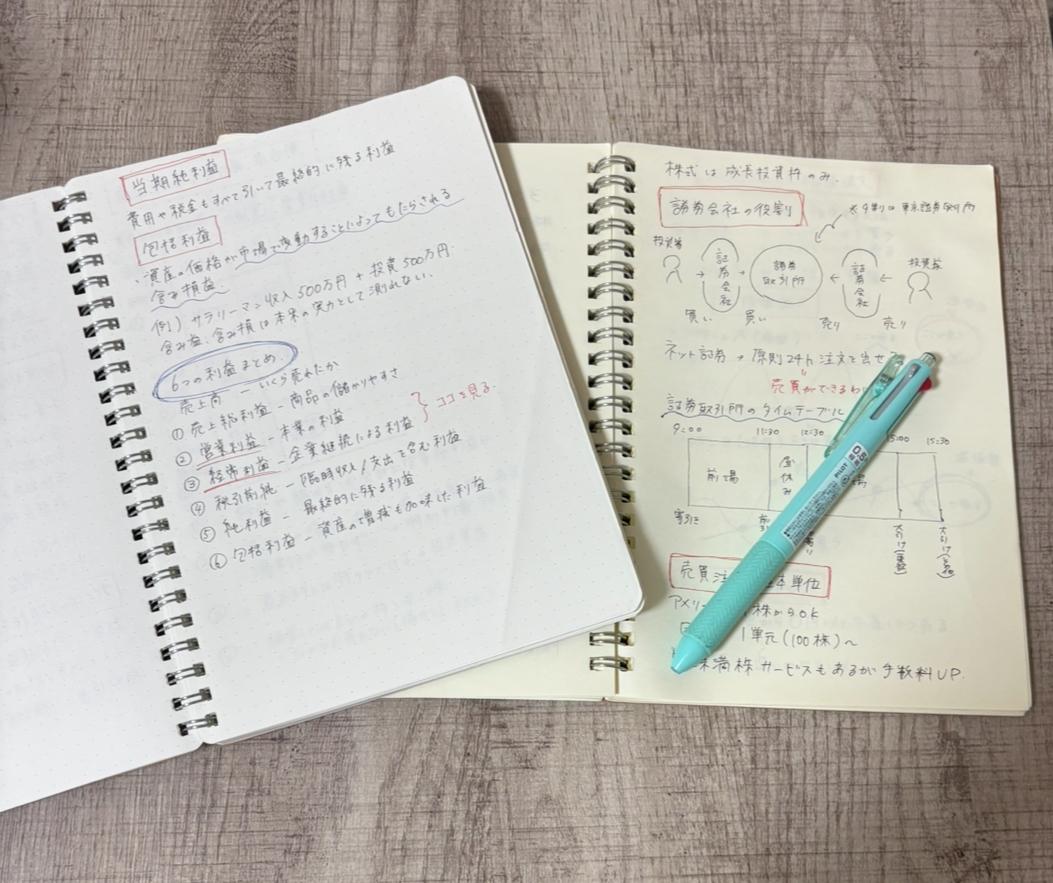 当期純利益
費用や税金もすべて引いて最終的に残る利益
包括利益
・資産の価格が市場で変動することによってもたらされる
含み損益。
例）サラリーマン収入500万円 + 投資500万円.
含み益、含み損は本来の実力として測れない.
6つの利益まとめ.
売上高 — いくら売れたか
① 売上総利益 — 商品の儲かりやすさ
② 営業利益 — 本業の利益
③ 経常利益 — 企業継続による利益
ココを見る.
④ 税引前純 — 臨時収入/支出を含む利益
⑤ 純利益 — 最終的に残る利益
⑥ 包括利益 — 資産の増減も加味した利益
株式は成長投資枠のみ.
証券会社の役割
※9割は東京証券取引所
投資家
証券会社
証券取引所
証券会社
投資家
買い 買い 売り 売り
ネット証券 → 原則24h注文を出せ
売買ができるわ
証券取引所のタイムテーブル
9:00 11:30 12:30 15:00 15:30
前場
昼休み
場
寄引き
前
大引け
大引け
0.5
売買注 本単位
アメリ 株からOK
1単元(100株)〜
未満株サービスもあるが手数料UP.